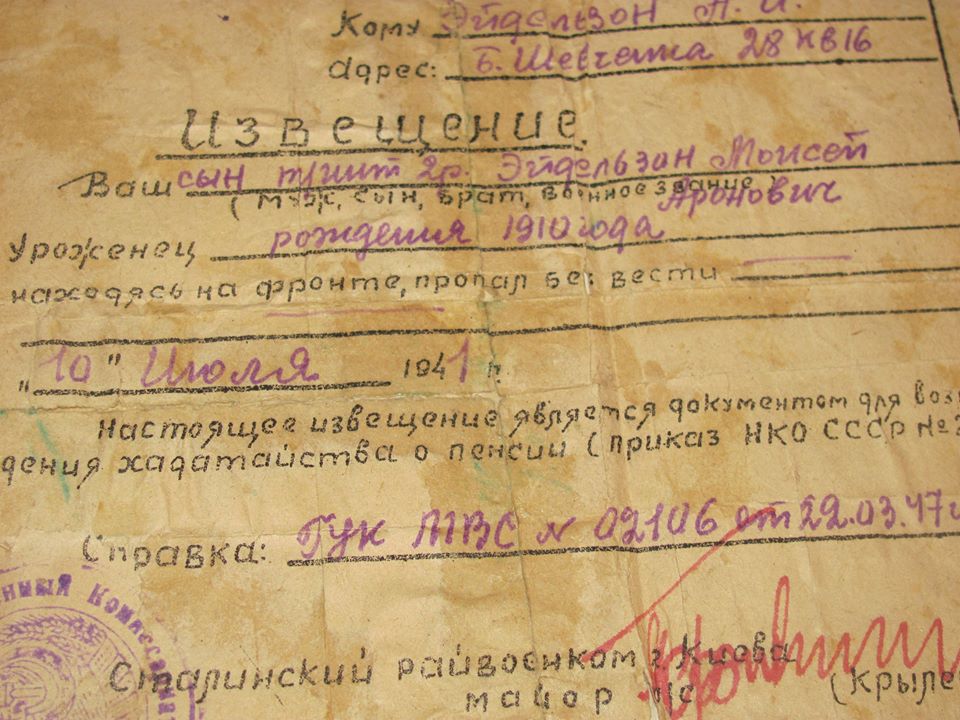 Кому Эйдельзон А. И.
Адрес: Б. Шевченка 28 кв 16
Извещение.
Ваш сын т/инт 2р. Эйдельзон Моисей
(муж, сын, брат, военное звание) Аронович
Уроженец рождения 1910 года
находясь на фронте, пропал без вести
"10" Июля 1941 г.
Настоящее извещение является документом для воз
дения хадатайства о пенсии (приказ НКО СССР №
Справка: ГУК МВС № 02106 от 22.03.47 г
нный Комисса
Сталинский райвоенком г Киева
майор (Крыле